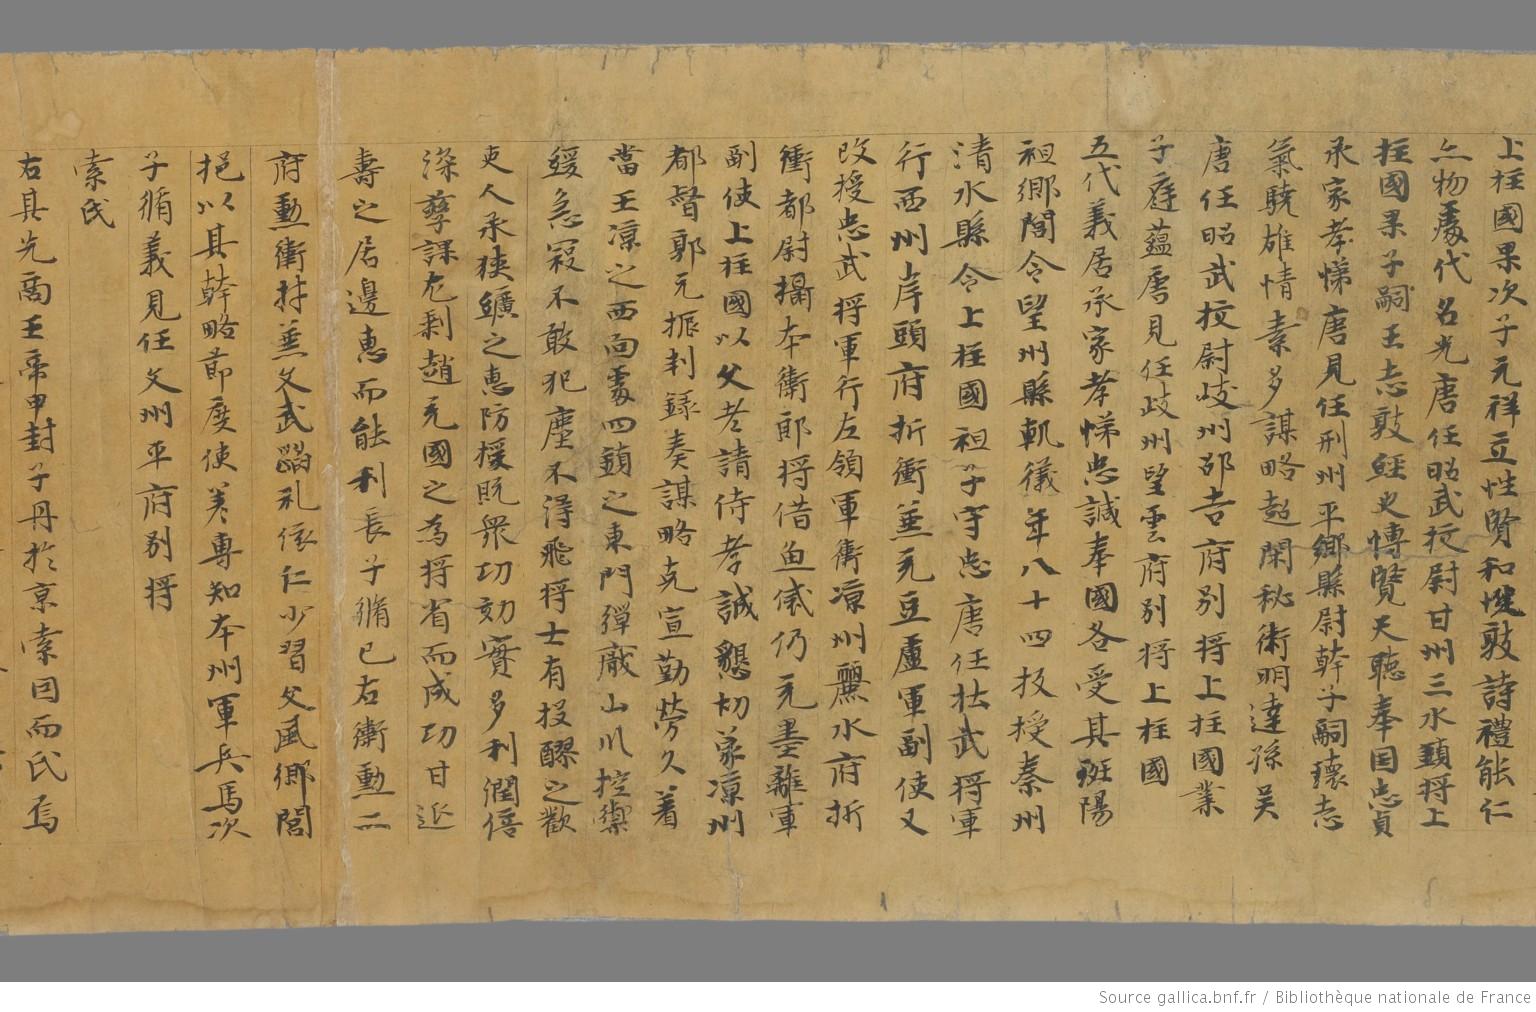 上柱國果次子元祥立性賢和惟敦詩禮能仁
亡物處代名光唐任昭武挍尉甘州三水鎮将上
柱國果子嗣王志敦經史慱覽天聽奉国忠貞
承家孝悌唐見任刑州平鄉縣尉幹子嗣瓌志
氣驍雄情素多謀略超閑秘術明達孫吴
唐任昭武挍尉岐州邵吉府别将上柱國業
子庭蘊唐見任岐州望雲府别将上柱國
五代義居承家孝悌忠誠奉國各受其班陽
祖鄉閭令望州縣軌儀年八十四板授秦州
清水縣令上柱國祖子守忠唐任壮武将軍
行西州岸頭府折衝兼充豆盧軍副使又
改授忠武将軍行左領軍衛凉州麗水府折
衝都尉攝本衛郎将借魚袋仍充墨離軍
副使上柱國以父老請侍孝誠懇切蒙凉州
都督郭元振判録奏謀略克宣勤勞久着
當王凉之西面處四鎮之東門彈厭山川控禦
緩急寇不敢犯塵不得飛将士有投醪之歡
吏人承狹纊之惠防援既衆功効實多利潤倍
深孳課尤剩趙充國之為将省而成功甘延
壽之居邊惠而能利長子脩己右衛勳二
府勳衛材兼文武蹈礼依仁少習父風鄉閭
挹以其幹略節度使差專知本州軍兵馬次
子脩義見任文州平府别将
索氏
右其先商王帝甲封子丹於京索因而氏焉